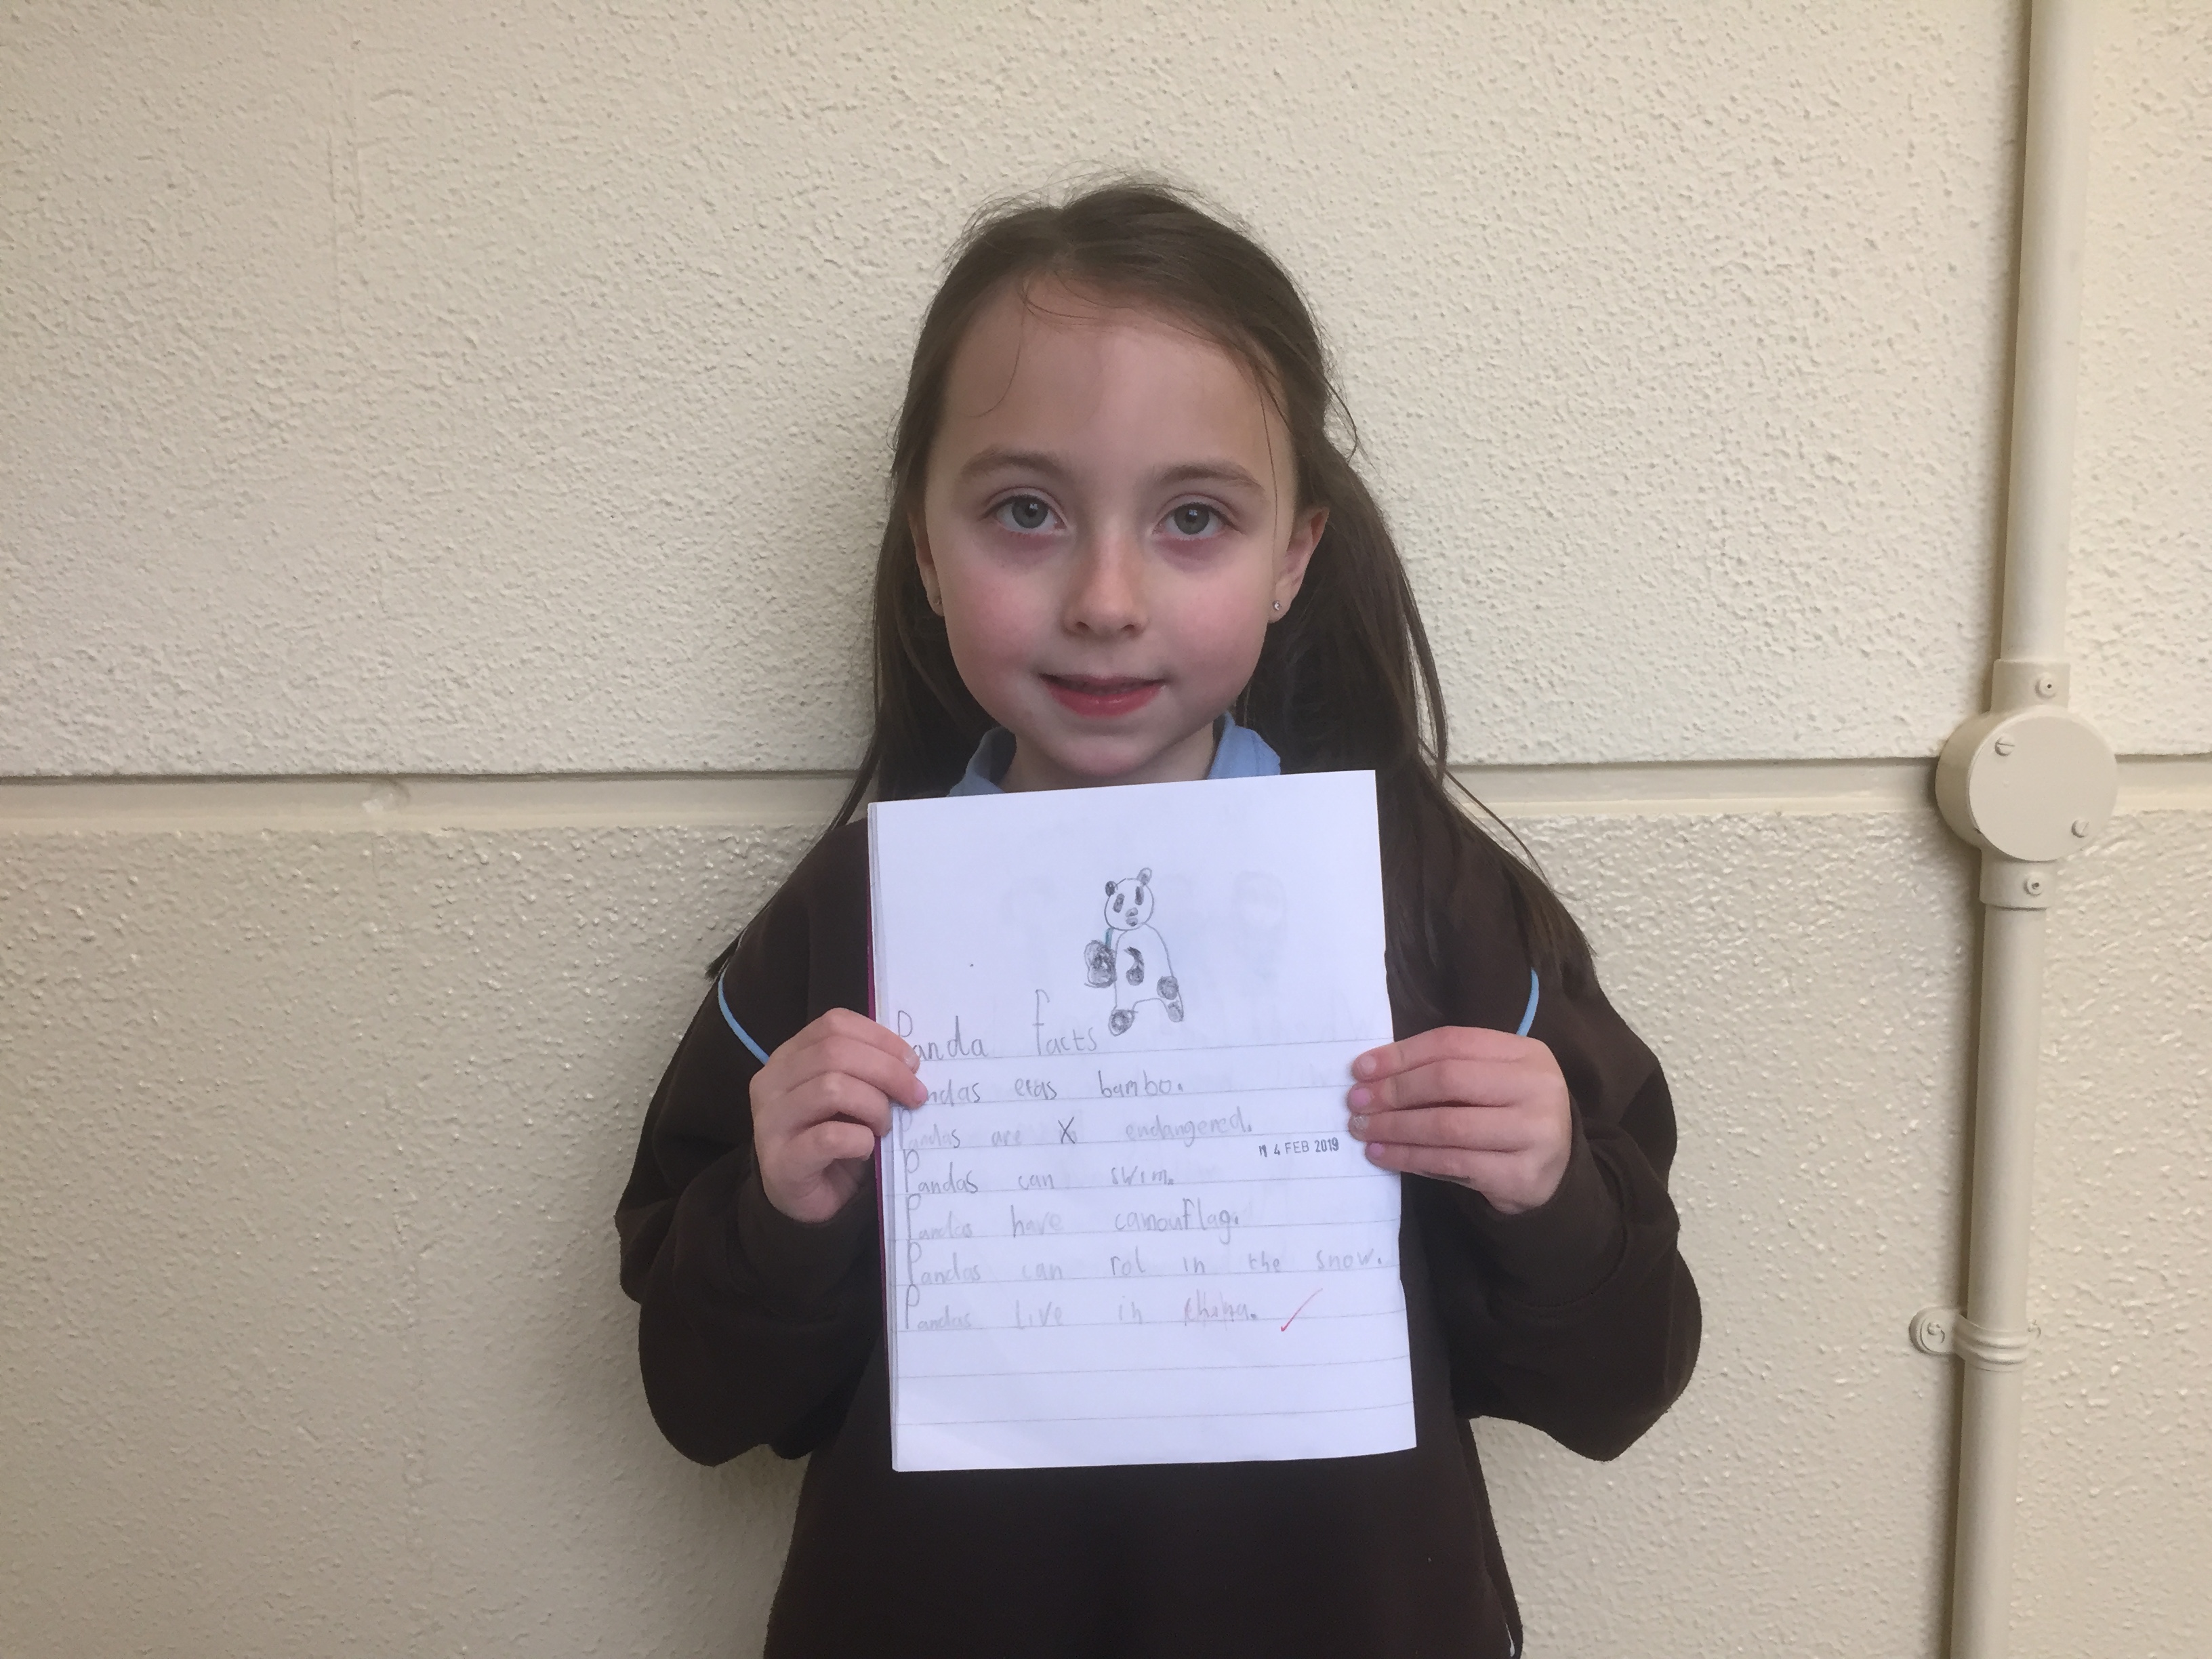 Panda facts
Pandas etas bambo.
Pandas are endangered.
4 FEB 2019
Pandas can swim.
Pandas have camouflag.
Pandas can rol in the snow.
Pandas live in China.